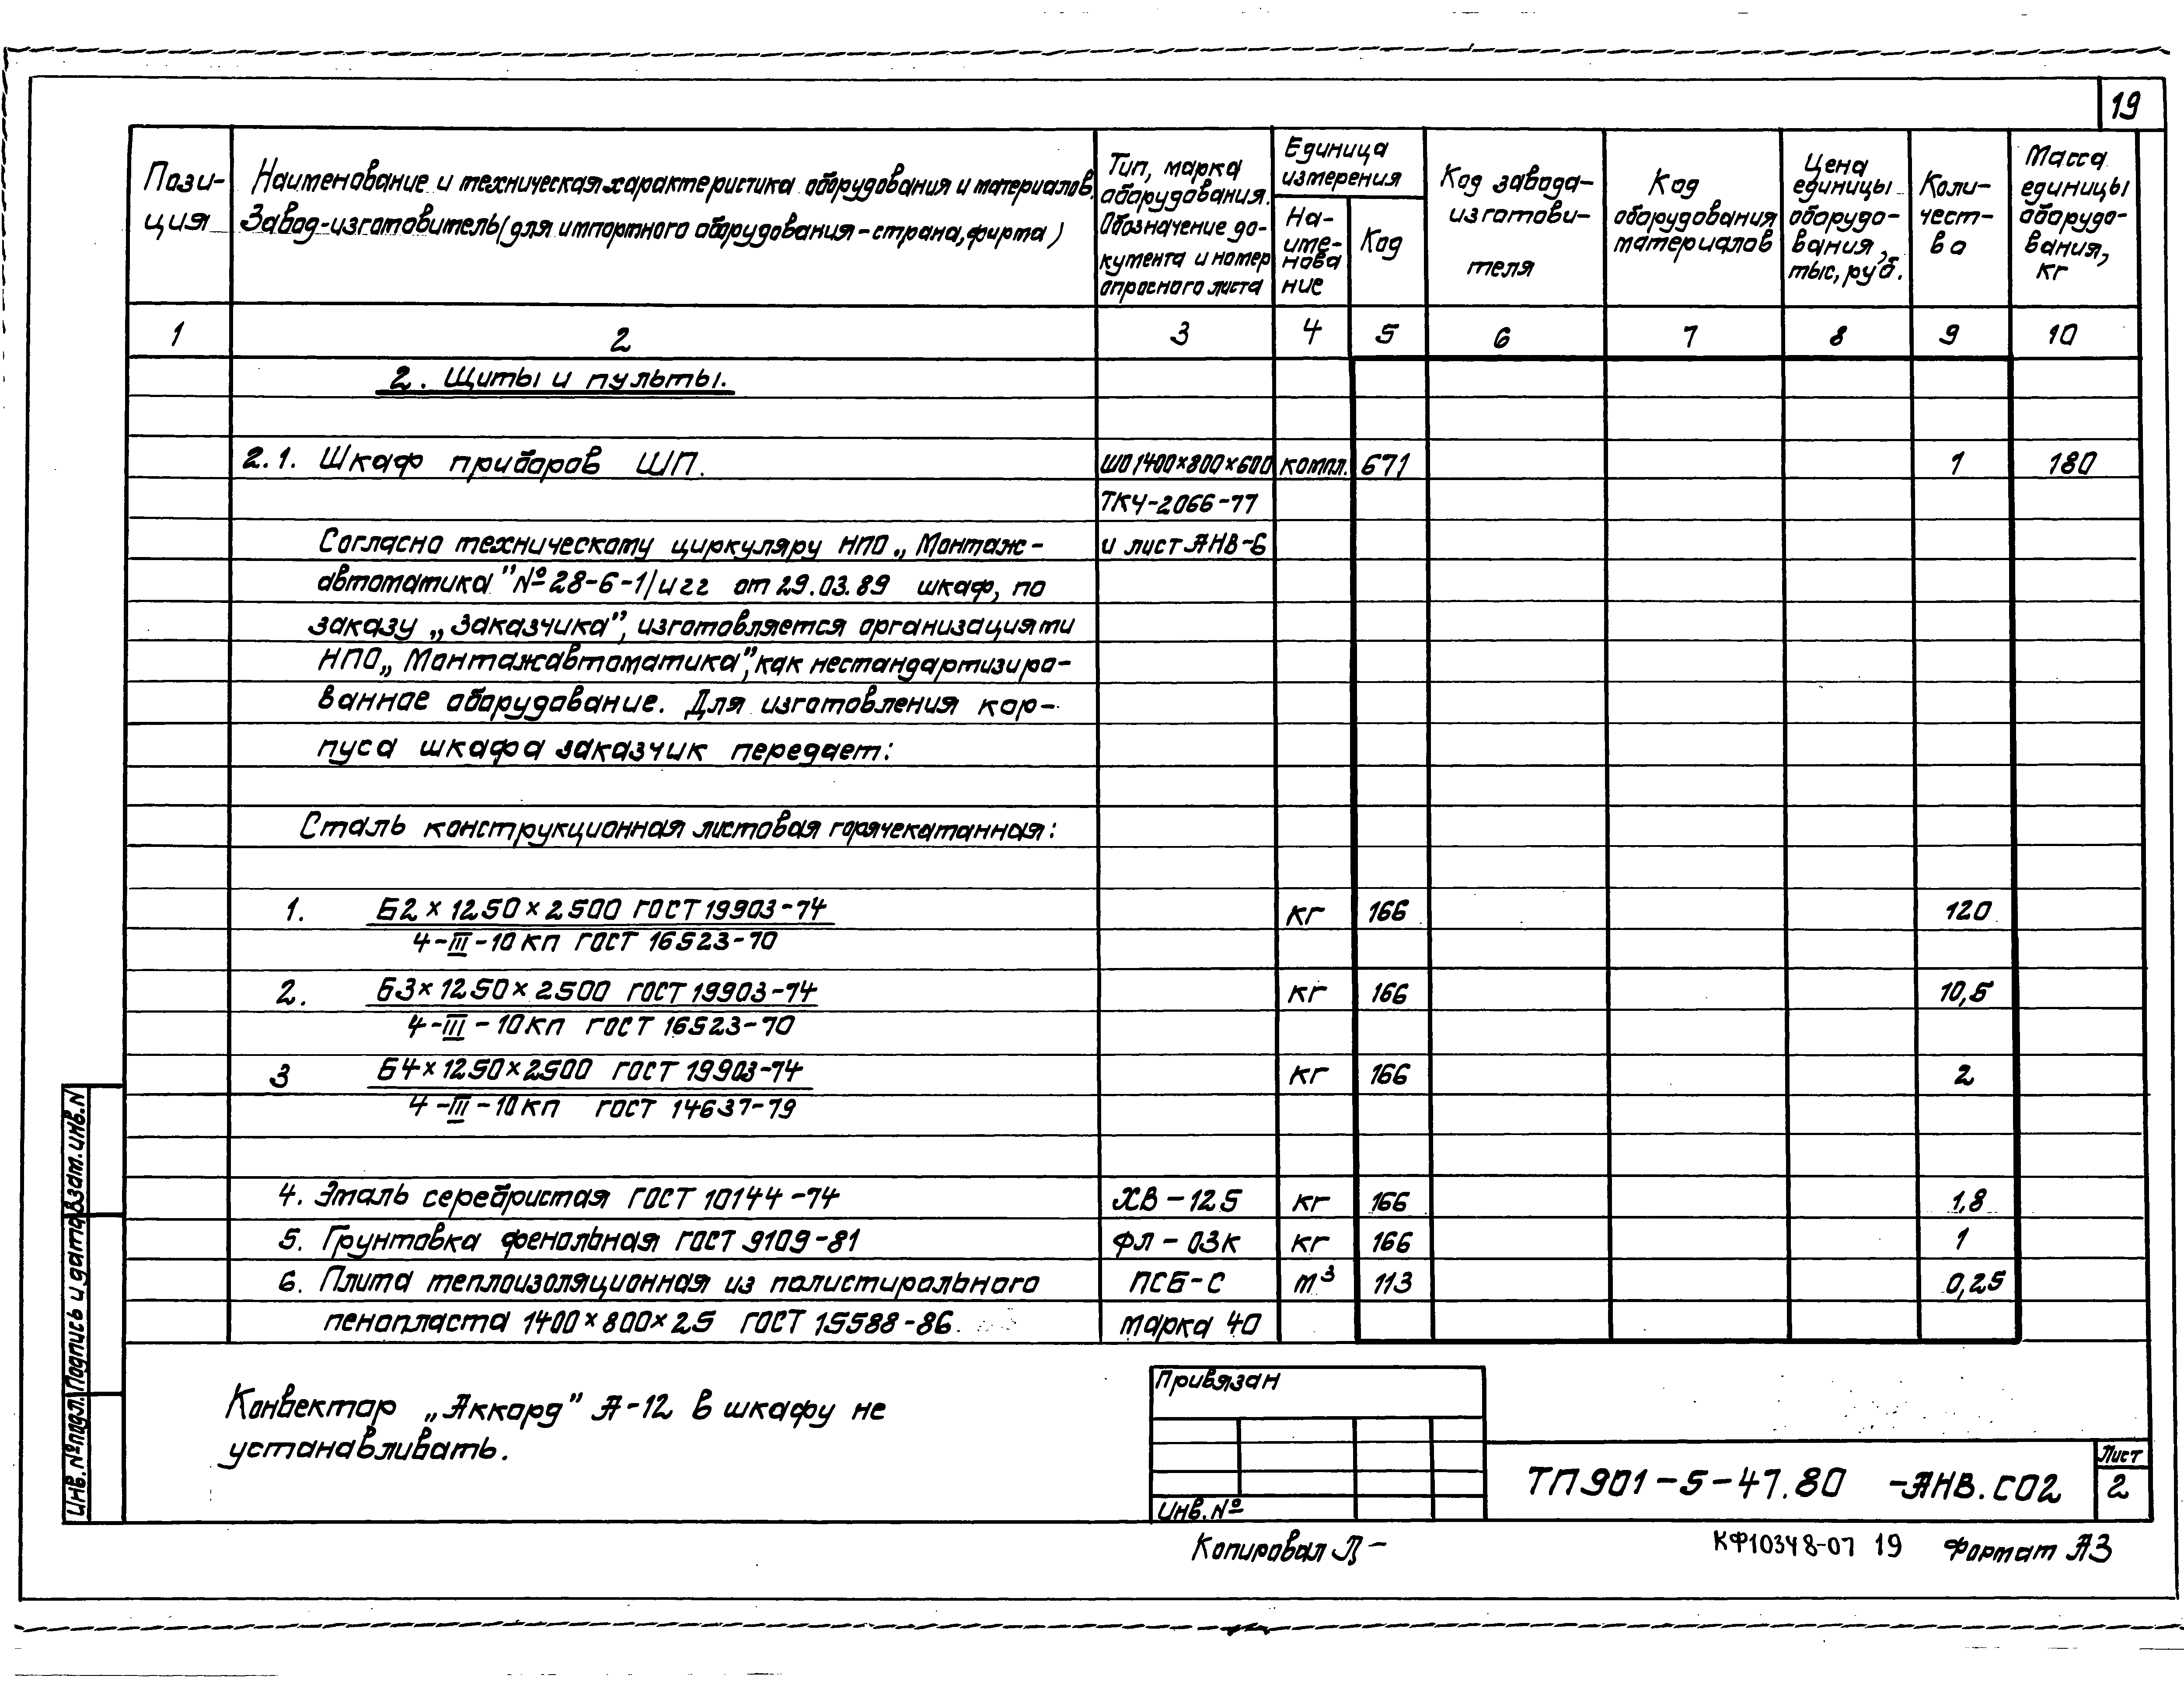 19
Пози-
ция
Наименование и техническая характеристика оборудования и материалов.
Завод-изготовитель (для импортного оборудования - страна, фирма)
Тип, марка
оборудования.
Обозначение до-
кумента и номер
опросного листа
Единица
измерения
На-
име-
нова
ние
Код
Код завода-
изготови-
теля
Код
оборудования
материалов
Цена
единицы
оборудо-
вания,
тыс, руб.
Коли-
чест-
во
Масса
единицы
оборудо-
вания,
кг
1 2 3 4 5 6 7 8 9 10
2. Щиты и пульты.
2.1. Шкаф приборов ШП. ШО 1400×800×600 компл. 671 1 180
ТКЧ-2066-77
Согласно техническому циркуляру НПО „Монтаж- и лист АНВ-6
автоматика" №28-6-1/игг от 29.03.89 шкаф, по
заказу „Заказчика", изготовляется организациями
НПО „Монтажавтоматика", как нестандартизиро-
ванное оборудование. Для изготовления кор-
пуса шкафа заказчик передает:
Сталь конструкционная листовая горячекатанная:
1. Б2×1250×2500 ГОСТ 19903-74 кг 166 120
4-III-10кп ГОСТ 16523-70
2. Б3×1250×2500 ГОСТ 19903-74 кг 166 10,5
4-III-10кп ГОСТ 16523-70
3 Б4×1250×2500 ГОСТ 19903-74 кг 166 2
4-III-10кп ГОСТ 14637-79
4. Эмаль серебристая ГОСТ 10144-74 ХВ-125 кг 166 1,8
5. Грунтовка фенольная ГОСТ 9109-81 ФЛ-03к кг 166 1
6. Плита теплоизоляционная из полистирального ПСБ-С м³ 113 0,25
пенопласта 1400×800×25 ГОСТ 15588-86. марка 40
Конвектор „Аккорд" А-12 в шкафу не
устанавливать.
Привязан
Инв.№
ТП901-5-47.80 -АНВ.СО2
Лист
2
Инв.№подл. Подпись и дата Взам.инв.N
Копировал
КФ10348-07 19 Формат А3